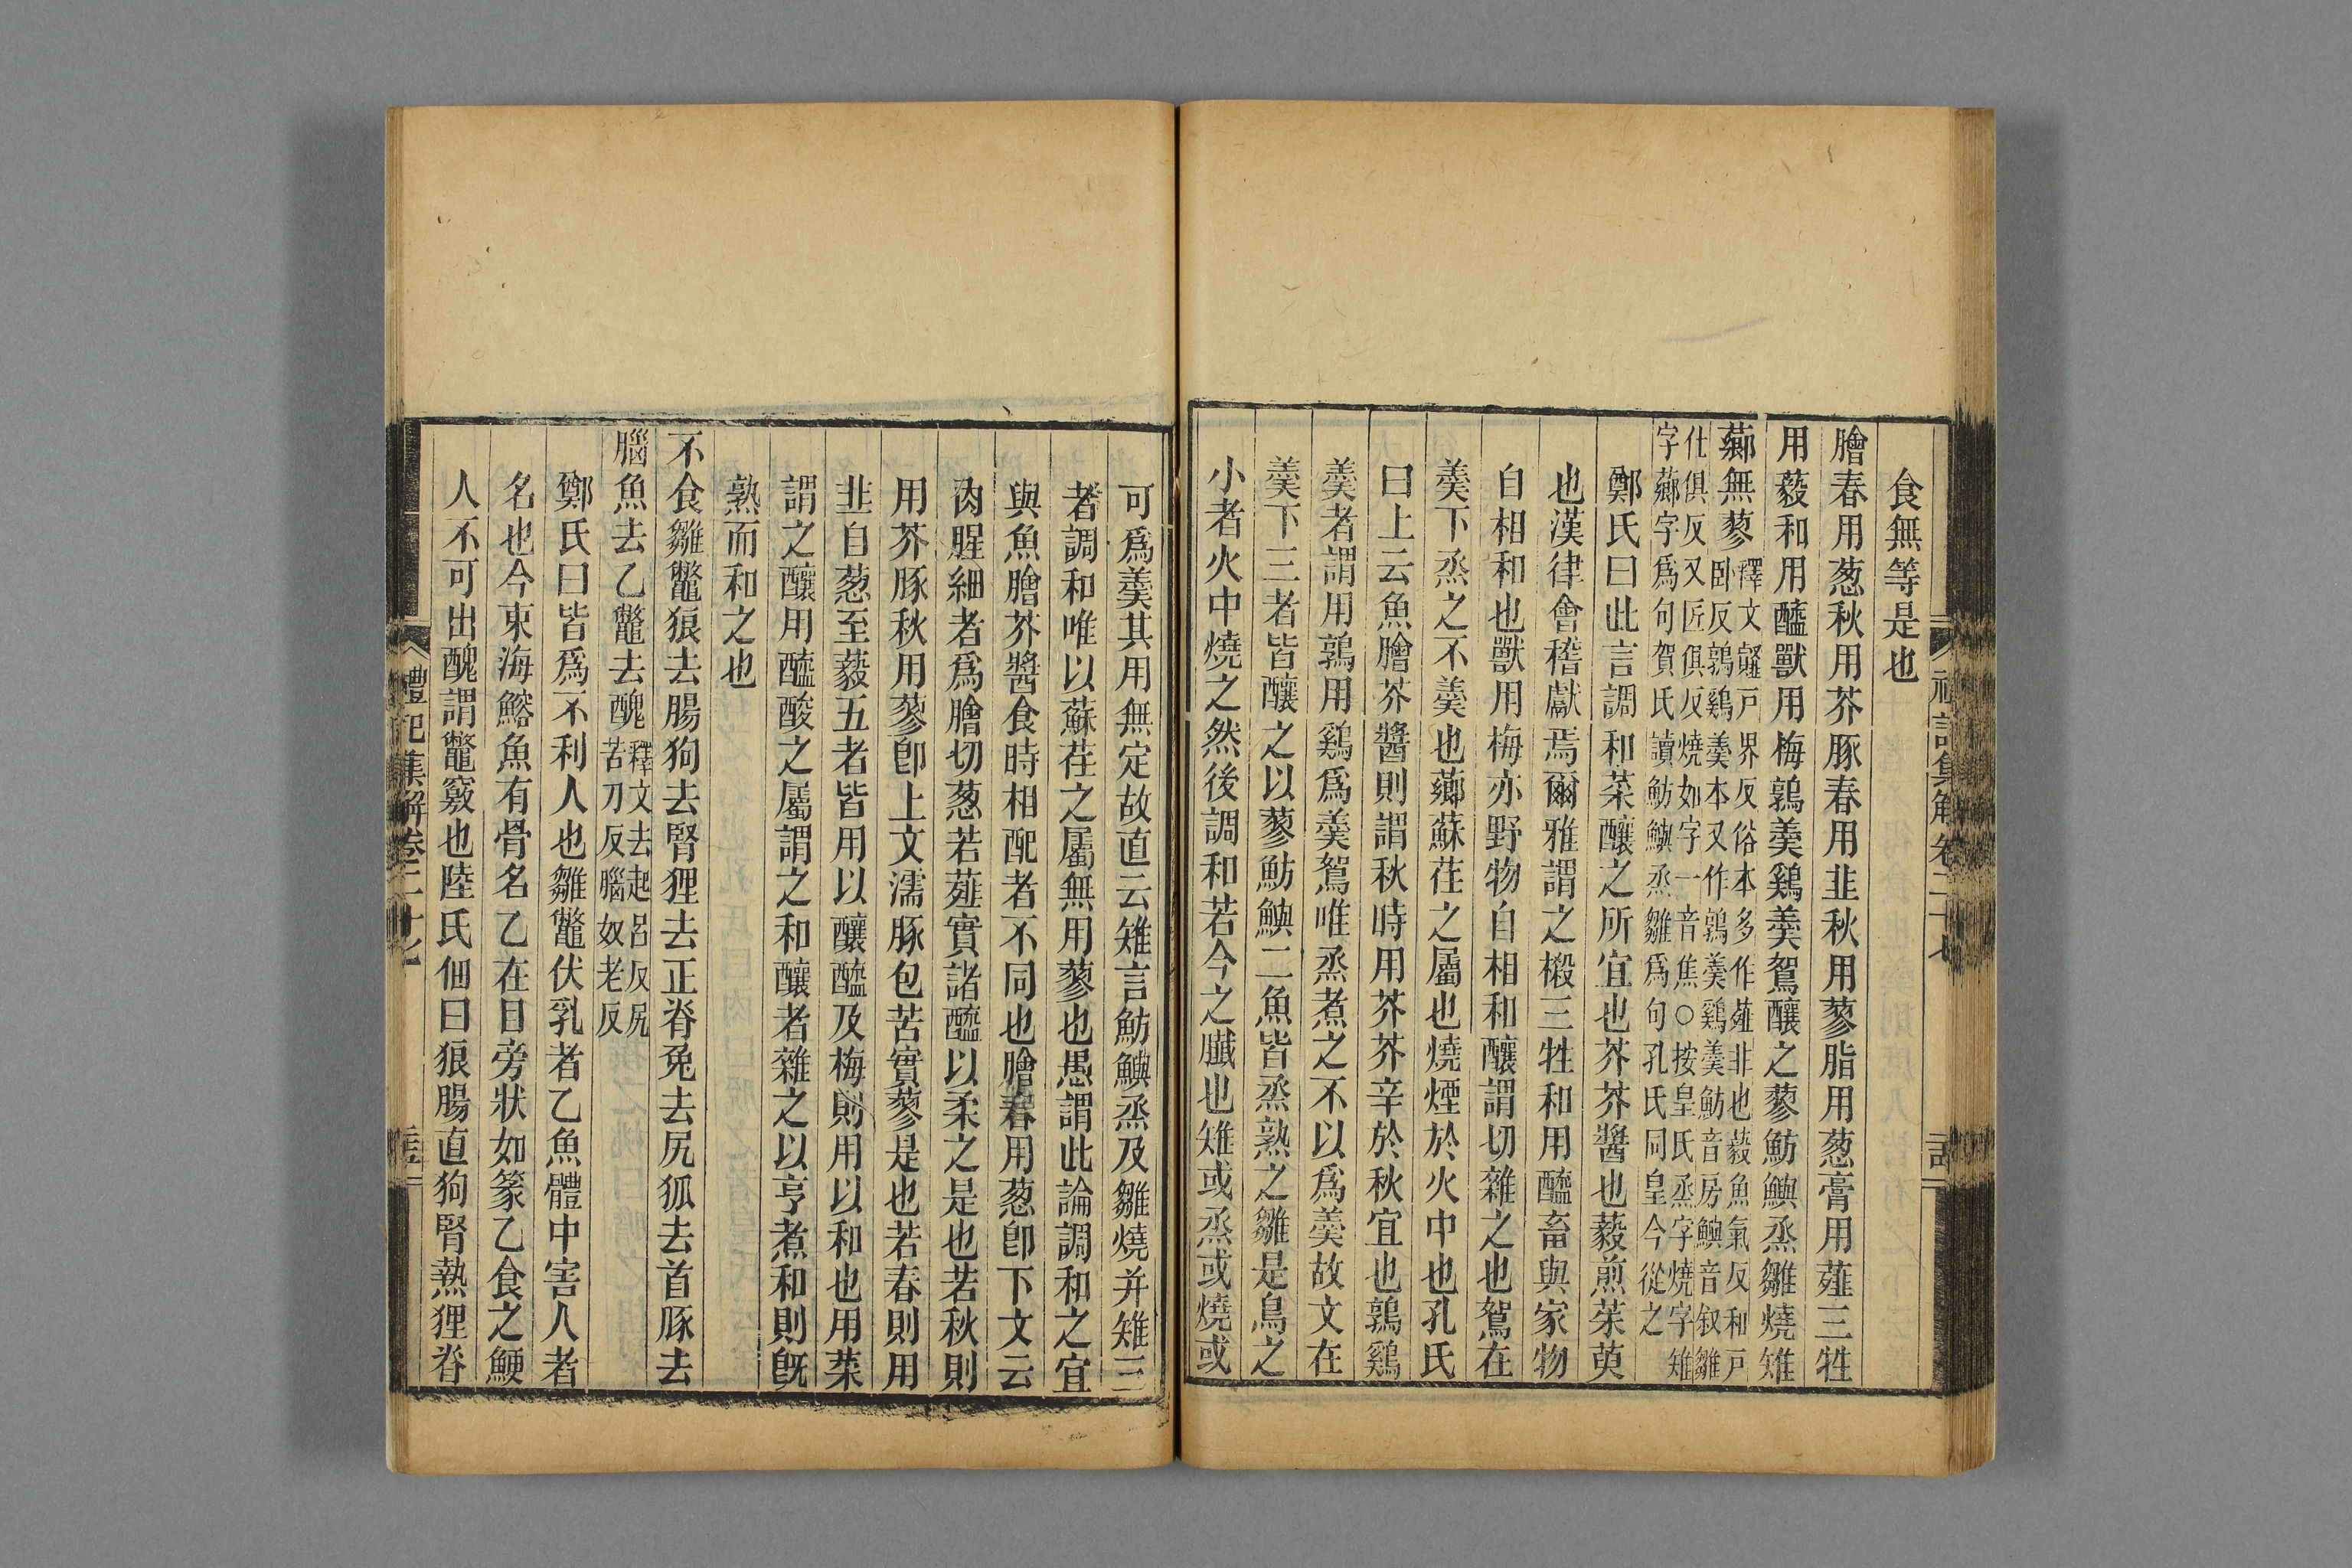 食無等是也
膾春用葱秋用芥豚春用韭秋用蓼脂用葱膏用薤三牲
用藙和用醯獸用梅鶉羹鷄羹鴽釀之蓼魴鱮烝雛燒雉
薌無蓼
釋文薤戶界反俗本多作䪥非也藙魚氣反和戶
卧反鶉鷄羹本又作鶉羹鷄羹魴音房鱮音叙雛
仕俱反又匠俱反燒如字一音焦○按皇氏烝字燒字雉
字薌字爲句賀氏讀魴鱮烝雛爲句孔氏同皇今從之
鄭氏曰此言調和菜釀之所宜也芥芥醬也藙煎茱萸
也漢律會稽獻焉爾雅謂之榝三牲和用醯畜與家物
自相和也獸用梅亦野物自相和釀謂切雜之也鴽在
羹下烝之不羹也薌蘇荏之屬也燒煙於火中也孔氏
曰上云魚膾芥醬則謂秋時用芥芥辛於秋宜也鶉鷄
羹者謂用鶉用鷄爲羹鴽唯烝煮之不以爲羹故文在
羹下三者皆釀之以蓼魴鱮二魚皆烝熟之雛是鳥之
小者火中燒之然後調和若今之臘也雉或烝或燒或
可爲羹其用無定故直云雉言魴鱮烝及雛燒并雉三
者調和唯以蘇荏之屬無用蓼也愚謂此論調和之宜
與魚膾芥醬食時相配者不同也膾春用葱卽下文云
肉腥細者爲膾切葱若薤實諸醯以柔之是也若秋則
用芥豚秋用蓼卽上文濡豚包苦實蓼是也若春則用
韭自葱至藙五者皆用以釀醯及梅則用以和也用菜
謂之釀用醯酸之屬謂之和釀者雜之以亨煮和則旣
熟而和之也
不食雛鼈狼去腸狗去腎狸去正脊兔去尻狐去首豚去
腦魚去乙鼈去醜
釋文去起呂反尻
苦刀反腦奴老反
鄭氏曰皆爲不利人也雛鼈伏乳者乙魚體中害人者
名也今東海鰫魚有骨名乙在目旁狀如篆乙食之鯁
人不可出醜謂鼈竅也陸氏佃曰狼腸直狗腎熱狸脊
禮記集解卷二十七